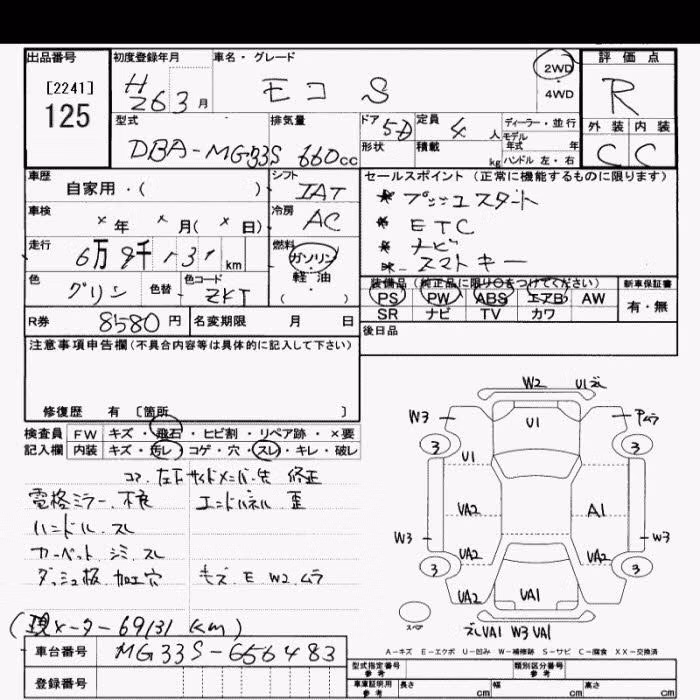 出品番号
[2241]
125
初度登録年月
H 26 3 月
車名・グレード
モコ S
2WD
・
4WD
評価点
R
外装 内装
C C
型式
DBA-MG33S
排気量
660cc
ドア 5D
形状
定員 4 人
積載 kg
ディーラー・並行
モデル
年式 年
ハンドル 左・右
車歴
自家用・( )
シフト
IAT
車検
× 年 × 月( × 日)
冷房
AC
走行
6万9千131 km
燃料
ガソリン
・
軽・油
( )
色
グリン
色替
色コード
ZKT
セールスポイント (正常に機能するものに限ります)
* プッシュスタート
* ETC
* ナビ
* スマトキー
装備品 (純正品に限り○をつけてください)
PS PW ABS エアB AW
SR ナビ TV カワ
新車保証書
有・無
R券 8580 円
名変期限 月 日
後日品
注意事項申告欄(不具合内容等は具体的に記入して下さい)
修復歴 有 [箇所 ]
検査員 FW キズ・飛石・ヒビ割・リペア跡・×要
記入欄 内装 キズ・汚レ・コゲ・穴・スレ・キレ・破レ
コア.左下サイドメンバ.先 修正
電格ミラー.不良 エンドパネル 歪
ハンドル.スレ
カーペット シミ.スレ
ダッシュ板.加工穴 キズ.E W2.ムラ
(現メーター69131 Km)
W2 U1ズレ
W3 U1 Pムラ
3 3
U1
VA2 A1
W3 W3
VA2 VA2
3 3
VA2 VA1
スペア
ズレVA1 W3 VA1
A-キズ E-エクボ U-凹み W-補修跡 S-サビ C-腐食 XX-交換済
車台番号 MG33S-656483
登録番号
型式指定番号
参考
類別区分番号
参考
車庫証明用
参考
長さ cm 幅 cm 高さ cm